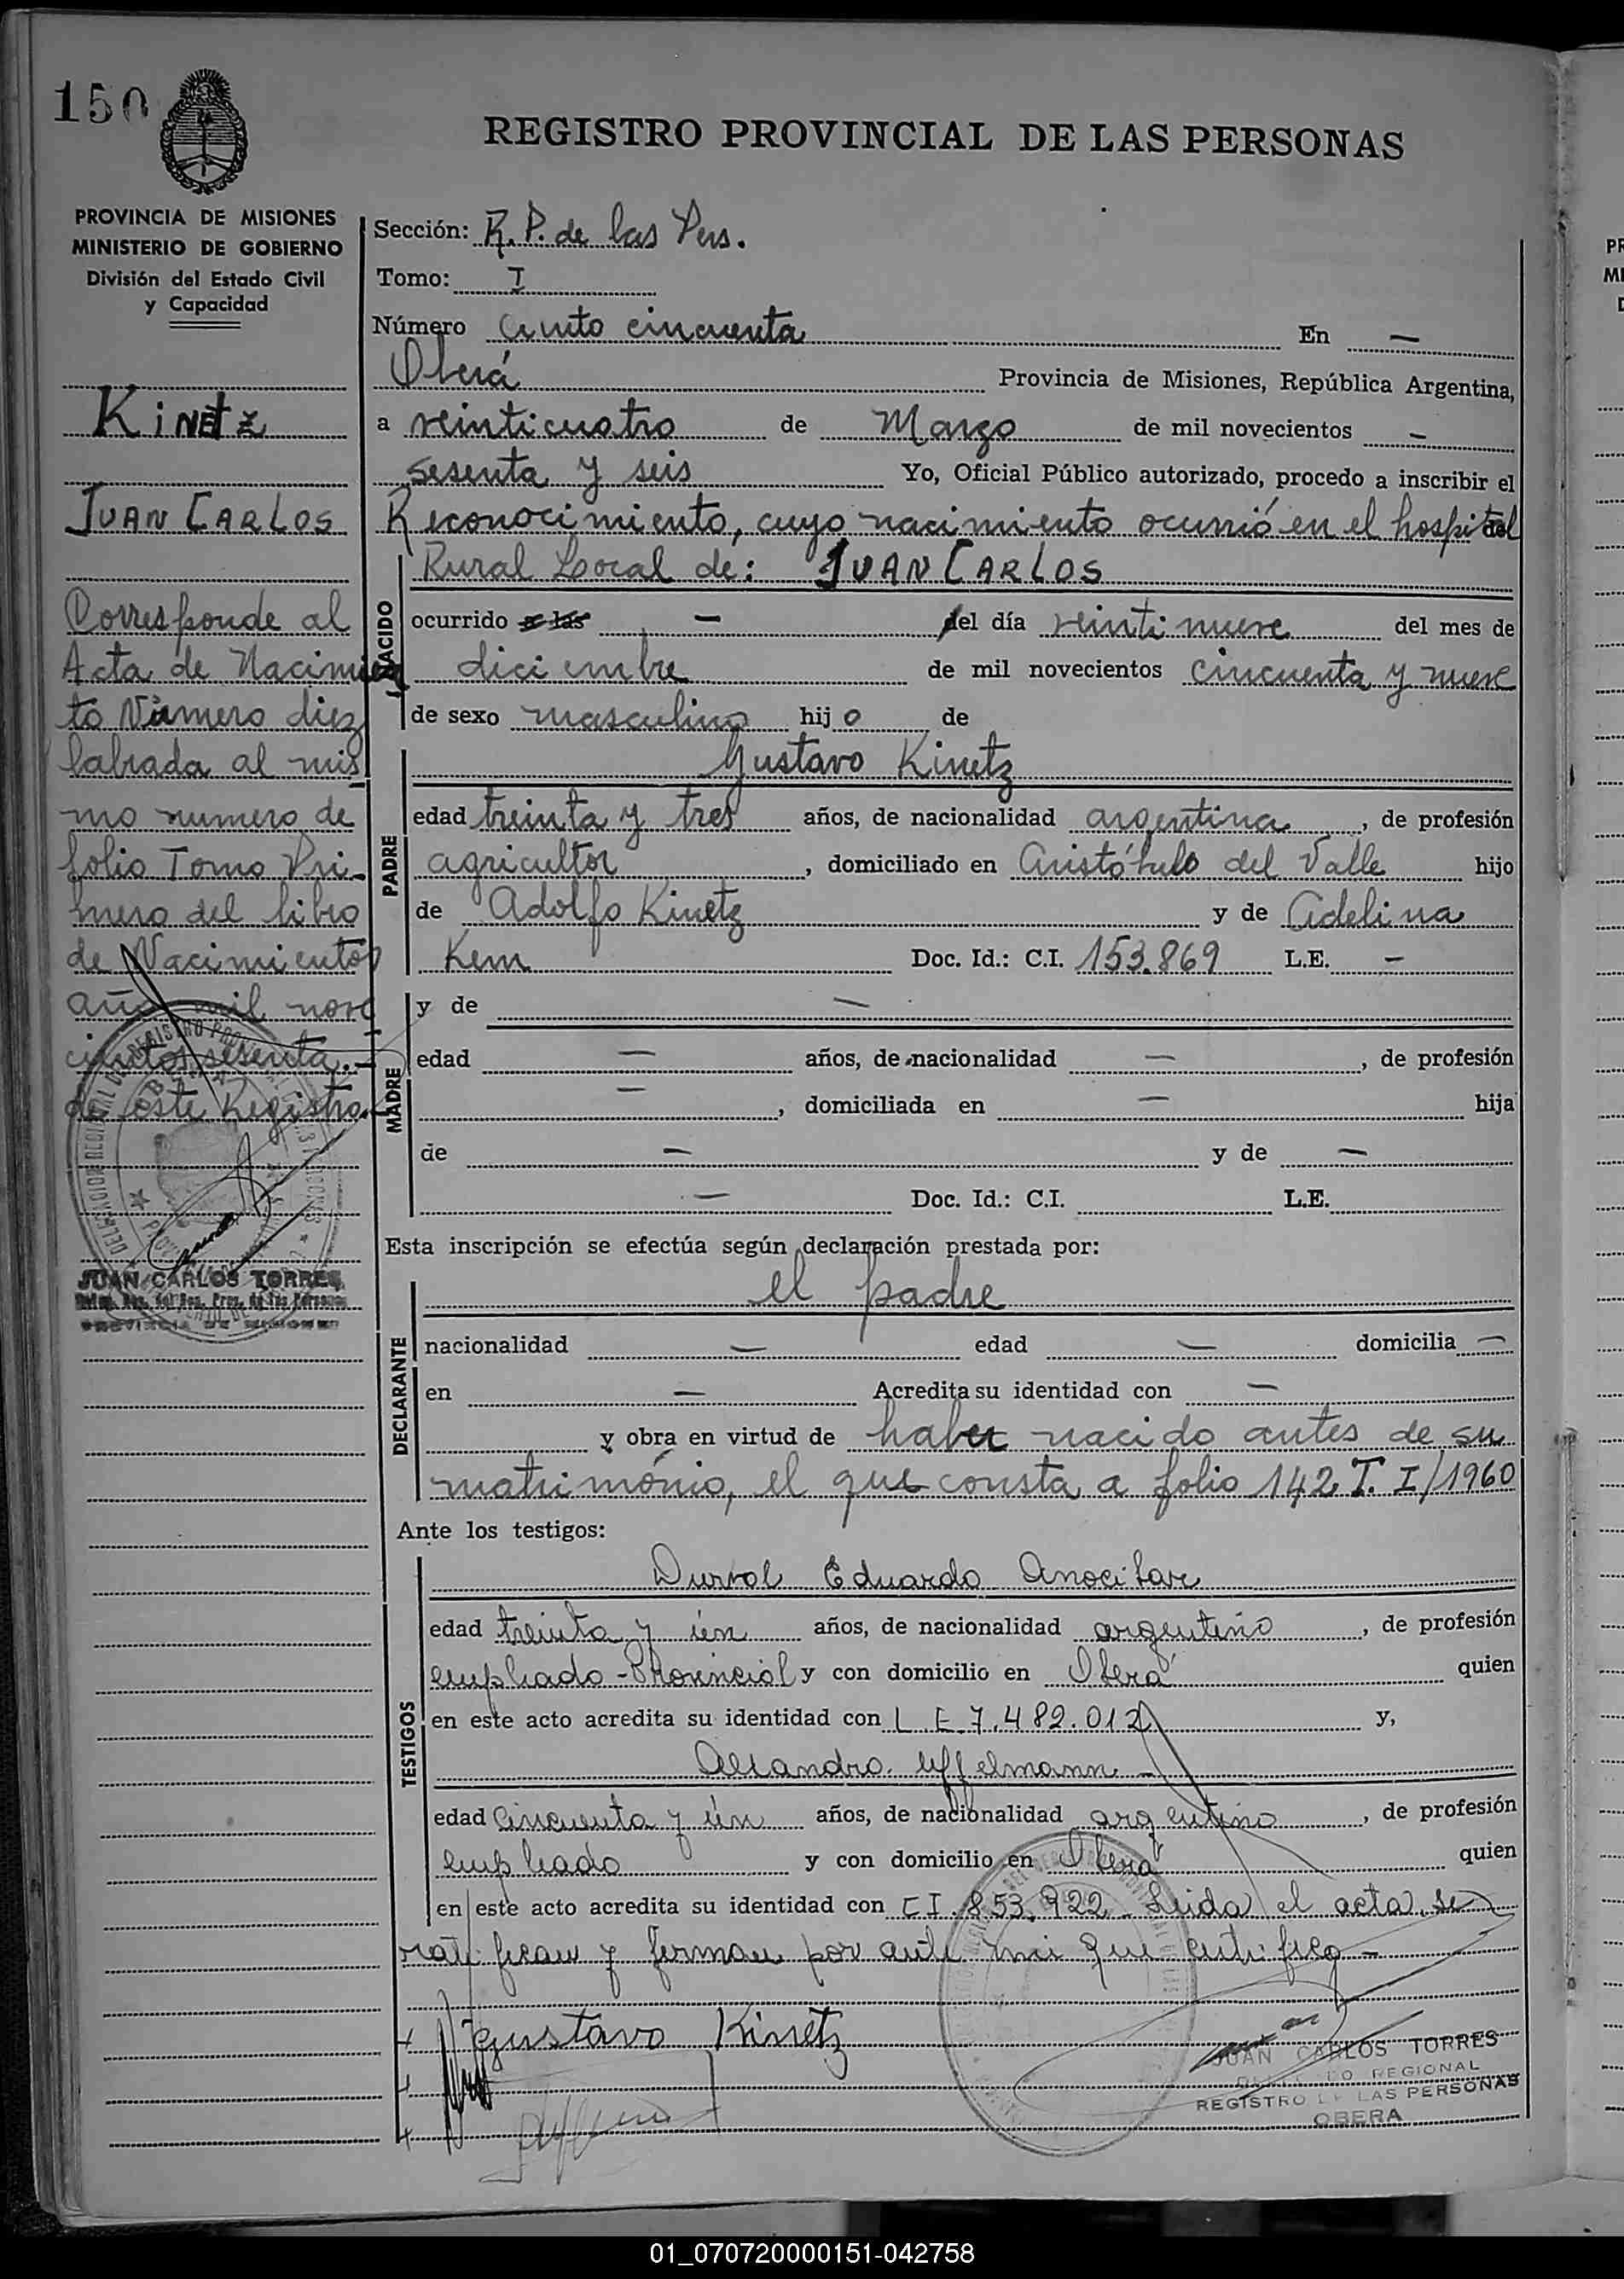 150
REGISTRO PROVINCIAL DE LAS PERSONAS
PROVINCIA DE MISIONES
MINISTERIO DE GOBIERNO
División del Estado Civil
y Capacidad
KINETZ
JUAN CARLOS
Corresponde al
Acta de Nacimien
to Número diez
labrada al mis
mo numero de
folio Tomo Pri-
mero del libro
de Nacimientos
año mil nove
cientos sesenta.-
de este Registro.
JUAN CARLOS TORRES
PROVINCIA DE MISIONES
Sección: R. P. de las Pers.
Tomo: I
Número Ciento cincuenta En —
Oberá Provincia de Misiones, República Argentina,
a veinticuatro de Marzo de mil novecientos —
sesenta y seis Yo, Oficial Público autorizado, procedo a inscribir el
Reconocimiento, cuyo nacimiento ocurrió en el hospital
Rural Local de: JUAN CARLOS
NACIDO
ocurrido a las — del día veintinueve del mes de
diciembre de mil novecientos cincuenta y nueve
de sexo masculino hijo de
PADRE
Gustavo Kinetz
edad treinta y tres años, de nacionalidad argentina, de profesión
agricultor, domiciliado en Aristóbulo del Valle hijo
de Adolfo Kinetz y de Adelina
Kem Doc. Id.: C.I. 153.869 L.E. —
MADRE
y de —
edad — años, de nacionalidad —, de profesión
—, domiciliada en — hija
de — y de —
— Doc. Id.: C.I. L.E.
Esta inscripción se efectúa según declaración prestada por:
DECLARANTE
el padre
nacionalidad — edad — domicilia —
en — Acredita su identidad con —
y obra en virtud de haber nacido antes de su
matrimónio, el que consta a folio 142 T. I/1960
Ante los testigos:
TESTIGOS
Durval Eduardo
edad treinta y ún años, de nacionalidad argentino, de profesión
empleado - Provincial y con domicilio en Oberá quien
en este acto acredita su identidad con L E 7.482.012 y,
Alejandro Uffelmann -
edad Cincuenta y ún años, de nacionalidad argentino, de profesión
empleado y con domicilio en Oberá quien
en este acto acredita su identidad con C I. 853.922 Leida el acta, se
ratifican y firman por ante mi que certifico -
Gustavo Kinetz
JUAN CARLOS TORRES
REGIONAL
REGISTRO DE LAS PERSONAS
OBERA
01_070720000151-042758